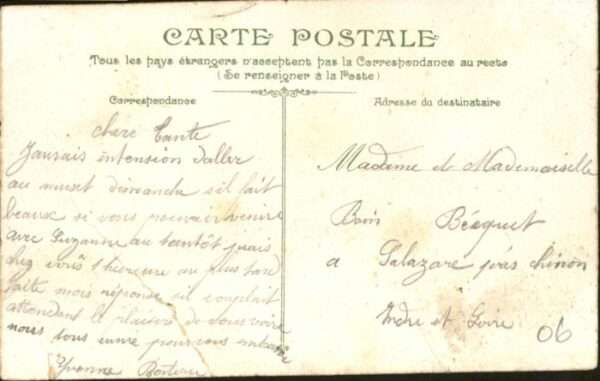 CARTE POSTALE
Tous les pays étrangers n'acceptent pas la Correspondance au recto
(Se renseigner à la Poste)
Correspondance
Adresse du destinataire
chere Tante
Jaurais intension daller
au muset dimanche sil fait
beaux si vous pouvair venire
avec Suzanne au tantôt jirais
chez vous 1 heure au plus tard
faite mois réponse sil vouplait
attendant le plaisire de vous voire
nous tous
Yvonne
Madame et Mademoiselle
Bécquet
a près chinon
Indre et Loire
06